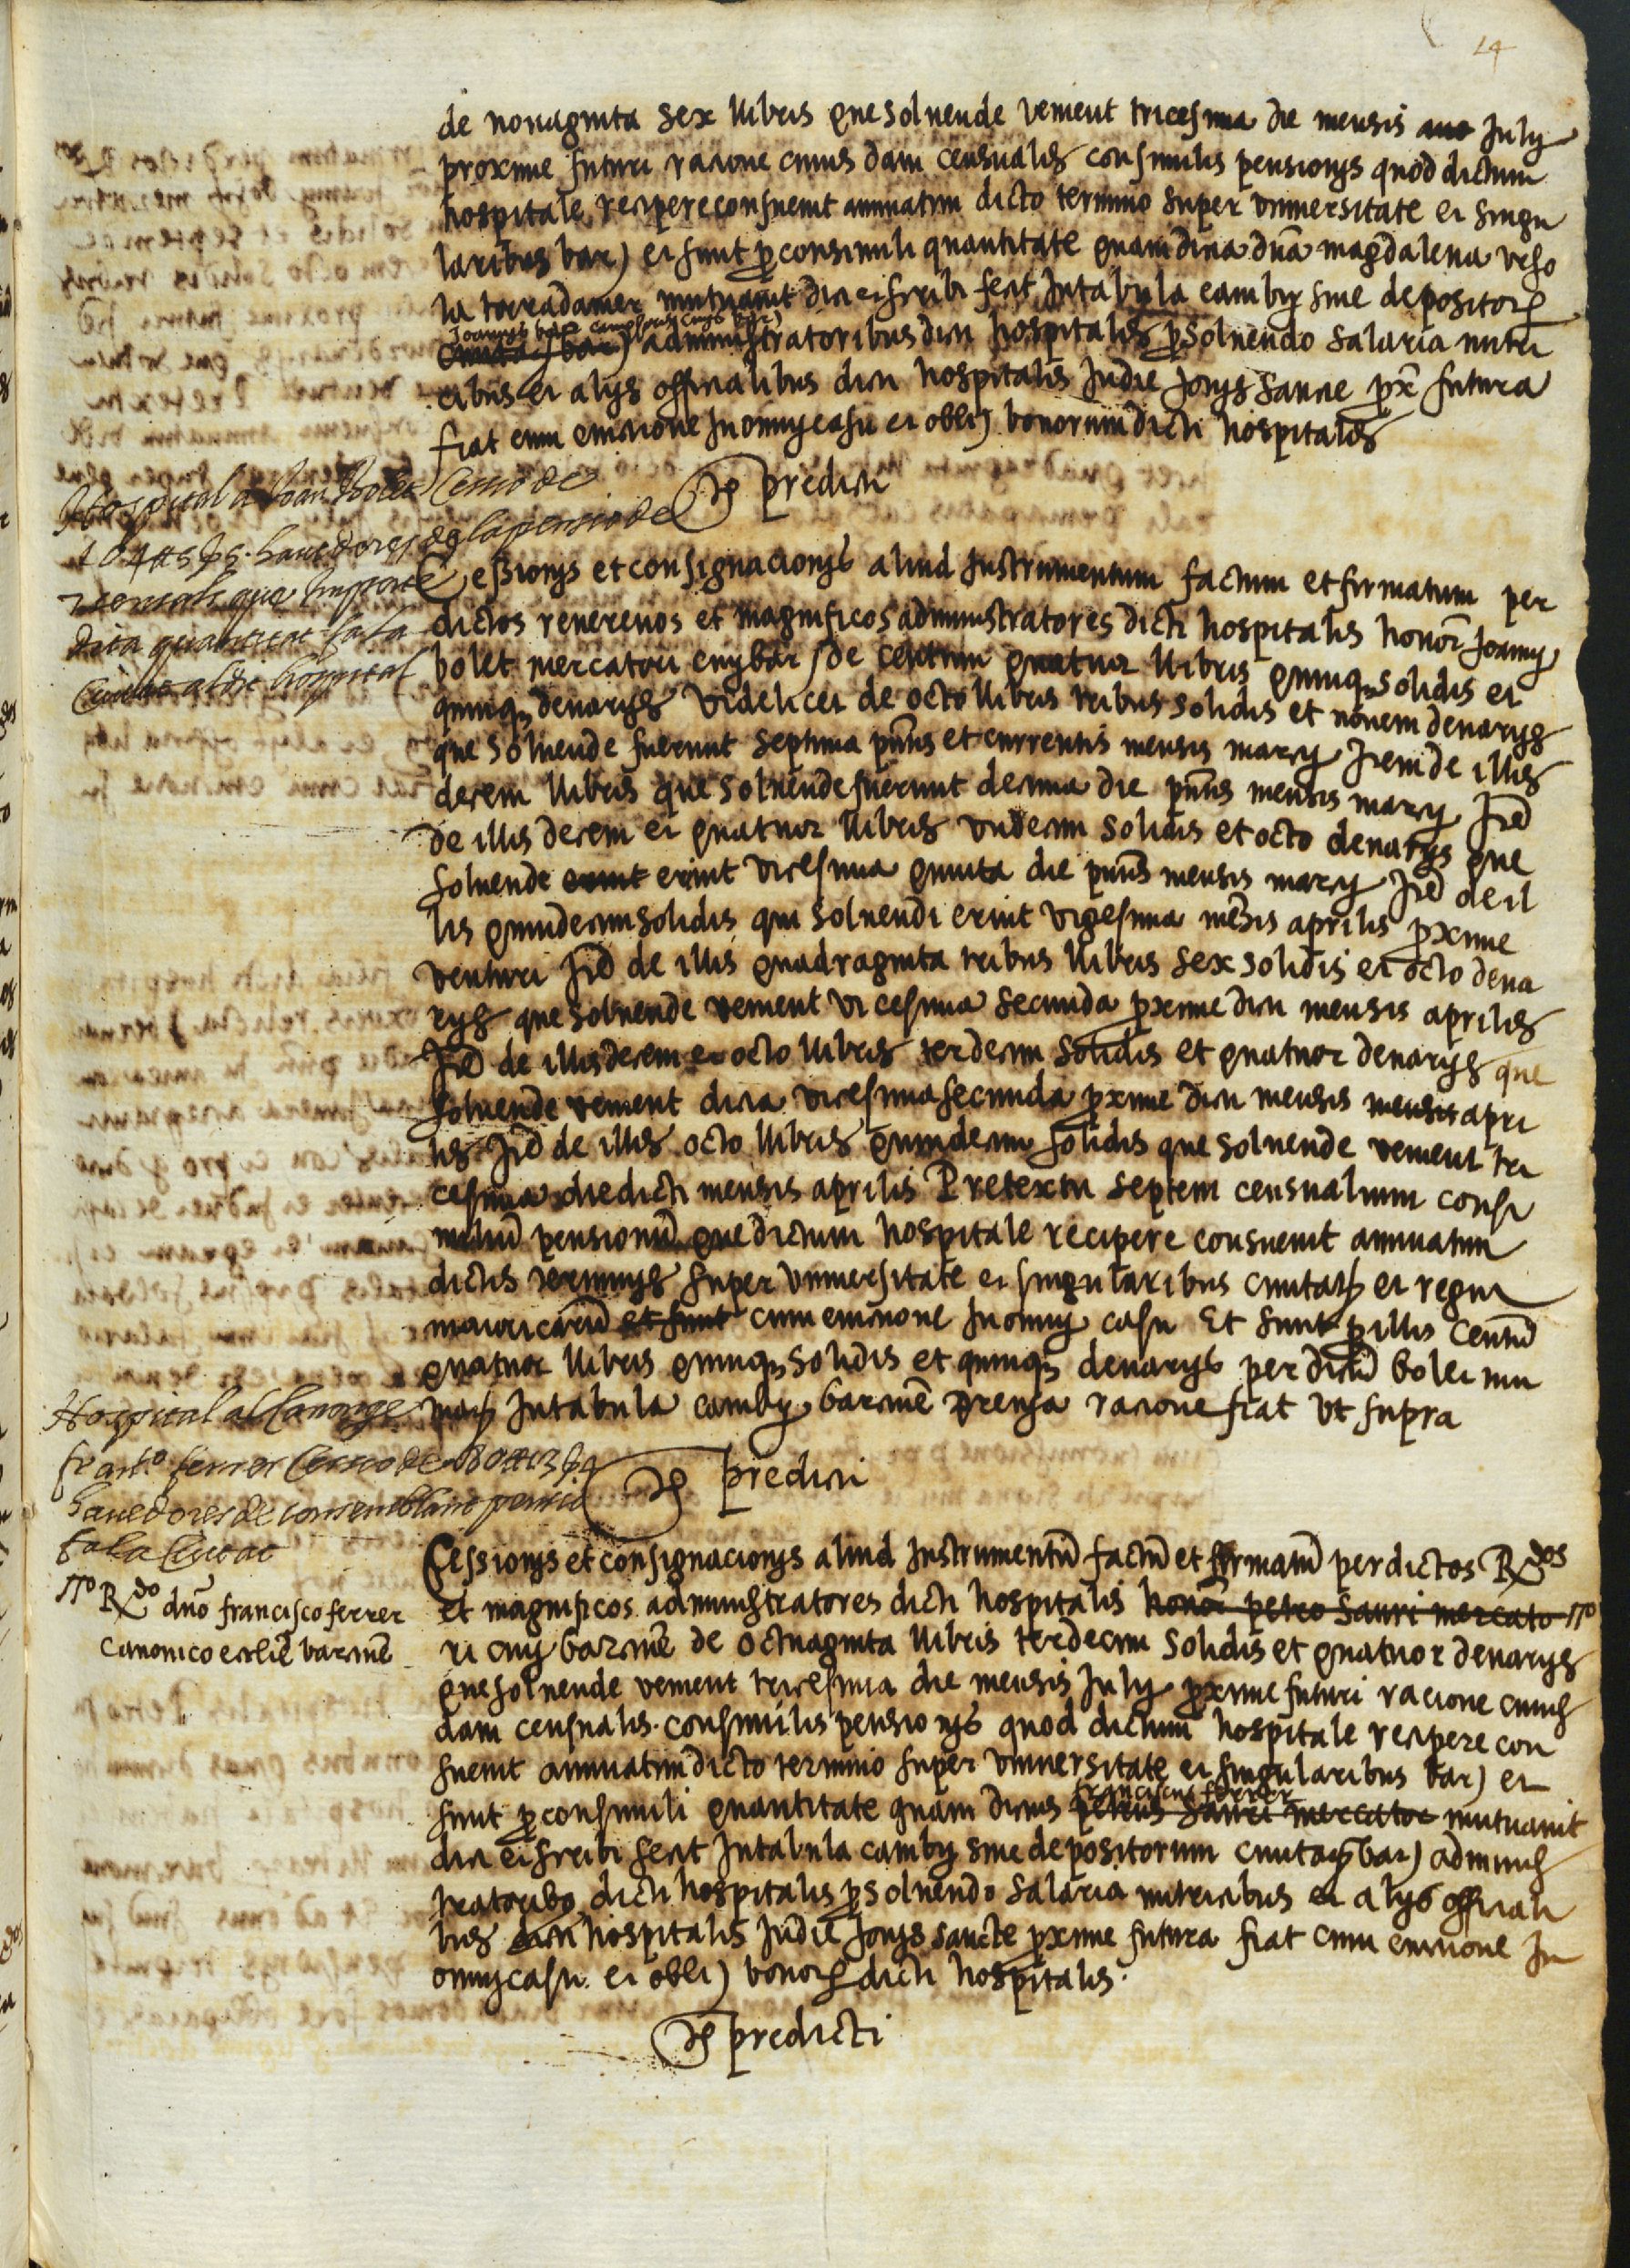 14
de nonaginta sex libris que solvende venient tricesima die mensis July
proxime futuri racione cuius dam censualis consimilis pensionis quod dictum
hospitale recipere consuevit annuatim dicto termino super universitate et singu
laribus bar) et sunt pro consimili quantitate quam dicta dna magdalena urso
la torradamer mutuavit dicti et scribi fecit In tabula camby sive depositorum
Joannis
civitatis bar) administratoribus dicti hospitalis pro solvendo salaria nutri
cibus et alys officialibus dicti hospitalis In die Jovis sancte prox futura
fiat cum eviccione In omny casu et obli) bonorum dicti hospitalis
Ts predicti
Hospital a Joan Bolet Cessio de
104 ₶ 5 s 5 havedores de la pensio de
censals que Importe
dita quantitat fa la
Ciutat al dit hospital
Cessionis et consignacionis aliud Instrumentum factum et firmatum per
dictos reverenos et magnificos administratores dicti hospitalis honor Joanny
bolet mercatori civy bar) de centum quatuor libris quinq solidis et
quinq denarys videlicet de octo libris tribus solidis et novem denarys
que solvende fuerunt septima pntis et currentis mensis marcy Item de illis
decem libris que solvende fuerunt decima die pntis mensis marcy Itē
de illis decem et quatuor libris undecim solidis et octo denarys que
solvende erunt vicesima quinta die pntis mensis marcy Itē de il
lis quindecim solidis qui solvendi erunt vigesima mesis aprilis proxime
venturi Itē de illis quadraginta tribus libris sex solidis et octo dena
rys que solvende venient vicesima secunda proxime dicti mensis aprilis
Itē de illis decem et octo libris terdecim solidis et quatuor denarys que
solvende venient dicta vicesima secunda proxime dicti mensis mensis apri
lis Itē de illis octo libris quindecim solidis que solvende venient tri
cesima die dicti mensis aprilis Pretextu septem censualium consi
miliū pensionū que dictum hospitale recipere consuevit annuatim
dictis terminys super universitate et singularibus civitatis et regni
maioricarū et sunt cum eviccione In omny casu Et sunt pro illis centū
quatuor libris quinq solidis et quinq denarys per dictū bolet nu
matis In tabula camby barcinē pretensa racione fiat ut supra
Ts predicti
Hospital al Canonge
franco ferrer Cessio de 80 ₶ 13 s 4
havedores de consemblant pensio
fa la Ciutat
Rdo dno francisco ferrer
canonico ecclie barcinē
Cessionis et consignacionis aliud Instrumentū factū et firmatū per dictos Rdos
et magnificos administratores dicti hospitalis honor petro sauri mercato
ri civy barcinē de octuaginta libris terdecim solidis et quatuor denarys
que solvende venient tricesima die mensis July proxime futuri racione cuius
dam censualis consimilis pensionis quod dictum hospitale recipere con
suevit annuatim dicto termino super universitate et singularibus bar) et
franciscus ferrer
sunt pro consimili quantitate quam dictus petrus sauri mercator mutuavit
dicti et scribi fecit In tabula camby sive depositorum civitatis bar) adminis
tratoribo dicti hospitalis pro solvendo salaria nutricibus et alys officiali
bus dicti hospitalis In die Jovis sancte proxime futura fiat cum eviccione In
omny casu et obli) bonorum dicti hospitalis
Ts predicti